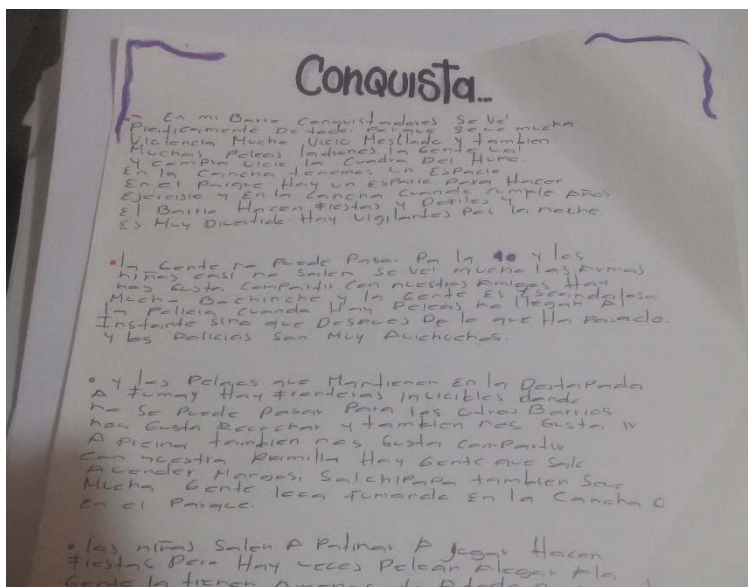 Conquista...
- En mi Barrio Conquistadores Se Ve'
Practicamente De todo. Porque Se ve mucha
Violencia Mucho Vicio Mesclado y tambien
Muchas Peleas ladrones la Gente Va
y Compra Vicio la Cuadra Del Humo.
En la Cancha tenemos un Espacio
En el Parque Hay un Espacio Para Hacer
Ejercisio y En la Cancha Cuando cumple Años
El Barrio Hacen Fiestas y Desfiles y
Es Muy Divertido Hay Vigilantes Por la noche
• la Gente no Puede Pasar Pa la 40 y los
niños casi no Salen Se ve' mucho las Armas
nos Gusta Compartir Con nuestros Amigos Hay
Mucho Bochinche y la Gente Es Escandalosa
la Policia Cuando Hay Peleas no llegan Al
Instante Sino que Despues De lo que Ha Pasado.
y los Policias Son Muy
• y los Pelaos que Mantienen En la Destapada
A Fumar Hay Fronteras Invicibles donde
no Se Puede Pasar Para los Otros Barrios
nos Gusta Recochar y tambien nos Gusta ir
A Picina tambien nos Gusta Compartir
Con nuestra Familia Hay Gente que Sale
A vender Mangos, Salchipapa tambien Se ve
Mucha Gente loca Fumando En la Cancha O
En el Parque.
• las niñas Salen A Patinar A Jogar Hacen
Fiestas Pero Hay veces Pelean
Gente la tienen